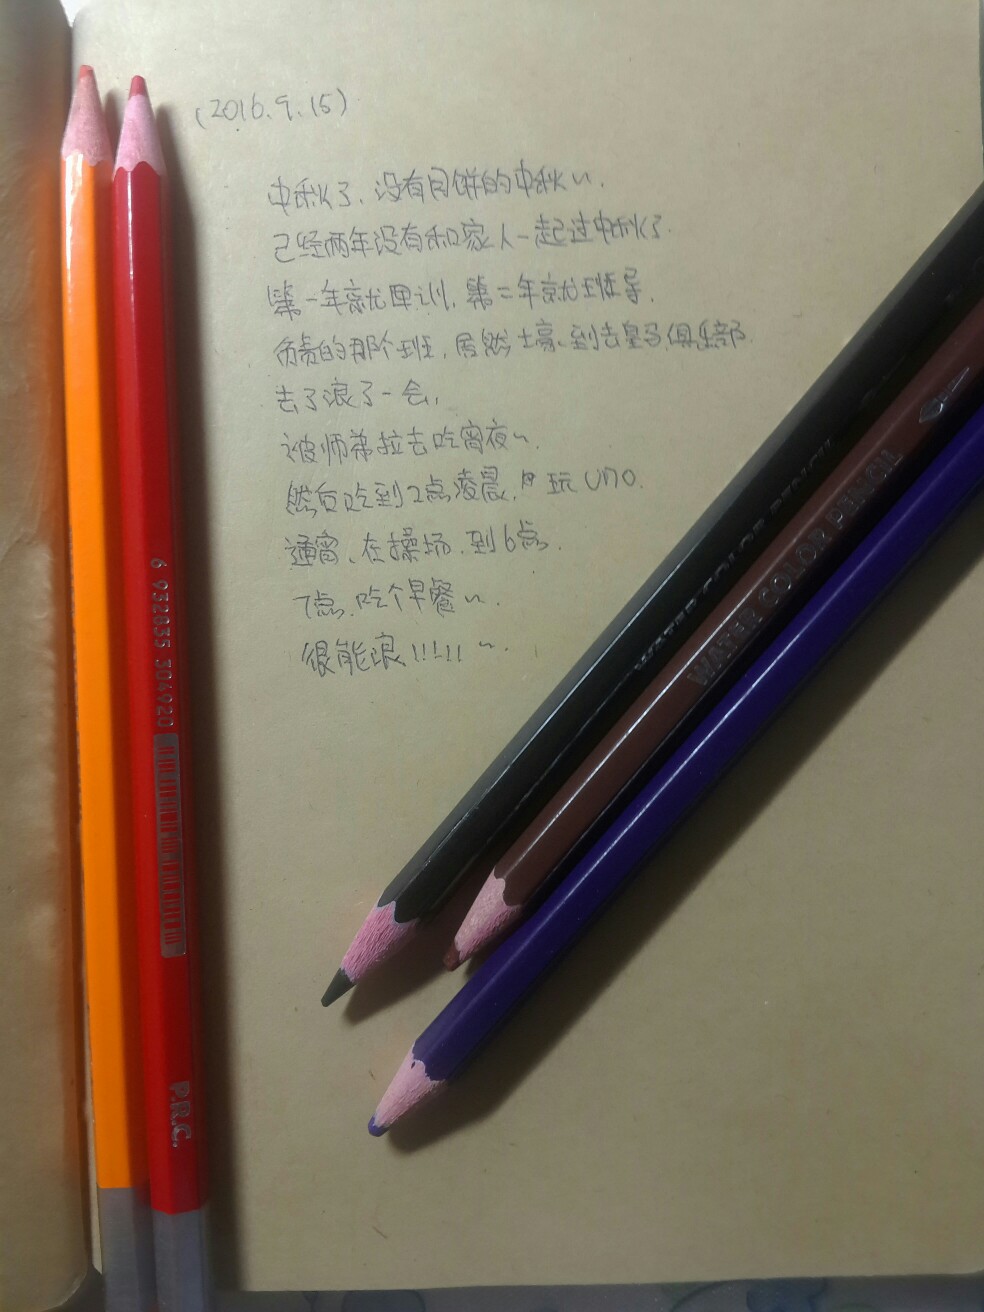 (2016.9.15)
中秋了、没有月饼的中秋~.
己经两年没有和家人一起过中秋了.
第一年就军训,第二年就班导.
负责的那个班,居然土豪到去皇马俱乐部.
去了浪了一会,
被师弟拉去吃宵夜~.
然后吃到2点凌晨,玩UNO.
通宵、在操场.到6点.
7点.吃个早餐~.
很能浪!!!!! ~.
6 932835 304920
P.R.C.
WATER COLOR PENCIL
WATER COLOR PENCIL